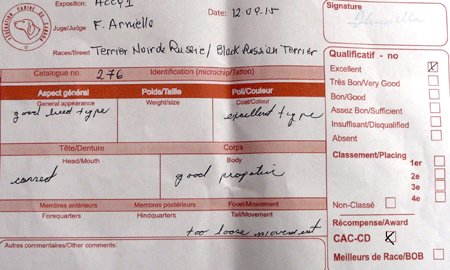 Exposition: ACCY1
Date: 12.09.15
Juge/Judge F. Armelle
Signature
Races/Breed Terrier Noir de Russie / Black Russian Terrier
Catalogue no. 276 Identification (microchip/Tattoo)
Qualificatif - no
Excellent
Très Bon/Very Good
Bon/Good
Assez Bon/Sufficient
Insuffisant/Disqualified
Absent
Aspect général Poids/Taille Poil/Couleur
General appearance Weight/size Coat/Colour
good type excellent type
Tête/Denture Corps
Head/Mouth Body
correct good
Classement/Placing
1er
2e
3e
4e
Membres antérieurs Membres postérieurs Fouet/Mouvement
Forequarters Hindquarters Tail/Movement
too loose movement
Non-Classé
Récompense/Award
CAC-CD
Meilleurs de Race/BOB
Autres commentaires/Other comments: